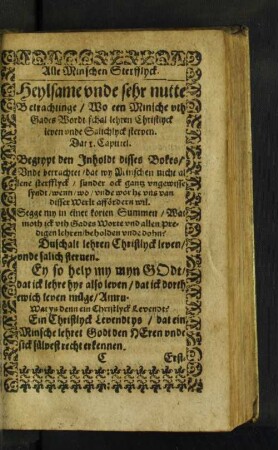 Alle Minschen Sterfflyck.
Heylsame vnde sehr nutte
Betrachtinge / Wo een Minsche vth
Gades Wordt schal lehren Christlyck
leven vnde Salichlyck sterven.
Dat 1. Capittel.
Begrypt den Inholdt disses Bokes /
Vnde betrachtet / dat wy Minschen nicht al
lene sterfflyck / sunder ock gantz vngewisse
syndt / wenn / wo / vnde wor he vns van
disser Werlt affördern wil.
Segge my in einer korten Summen / Wat
moth ick vth Gades Worte vnd allen Pre-
digen lehren / beholden vnde dohn?
Du schalt lehren Christlyck leven /
vnde salich sterven.
Ey so help my myn GOdt /
dat ick lehre hyr also leven / dat ick dorth
ewich leven müge / Amen.
Wat ys denn ein Christlyck Levendt?
Ein Christlyck Levendt ys / dat ein
Minsche lehret Godt den HEren vnde
sick sülvest recht erkennen.
C Erst-